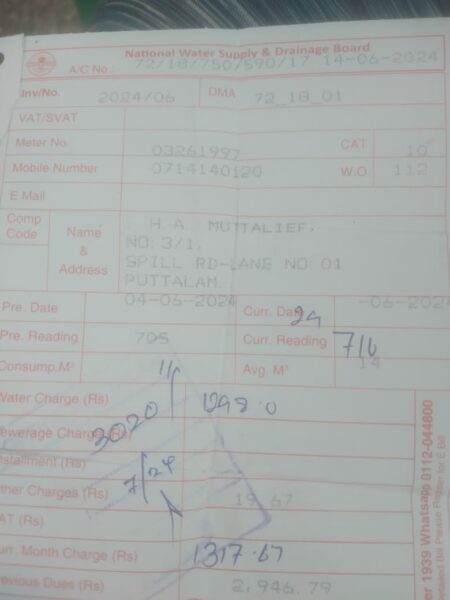 National Water Supply & Drainage Board
A/C No : 72/18/750/590/17 14-06-2024
Inv/No. 2024/06 DMA 72_18_01
VAT/SVAT
Meter No. 03261997 CAT 10
Mobile Number 0714140120 W.O. 112
E Mail
Comp Code Name & Address
H.A. MUTTALIEF,
NO: 3/1,
SPILL RD-LANE NO 01
PUTTALAM.
Pre. Date 04-06-2024 Curr. Date 24 -06-2024
Pre. Reading 705 Curr. Reading 716
Consump.M³ 11 Avg. M³ 14
Water Charge (Rs) 1298.0
Sewerage Charge (Rs) 3020
Installment (Rs)
7/24
Other Charges (Rs) 19.67
VAT (Rs)
Curr. Month Charge (Rs) 1317.67
Previous Dues (Rs) 2,946.79
1939 Whatsapp 0112-044800
for E Bill